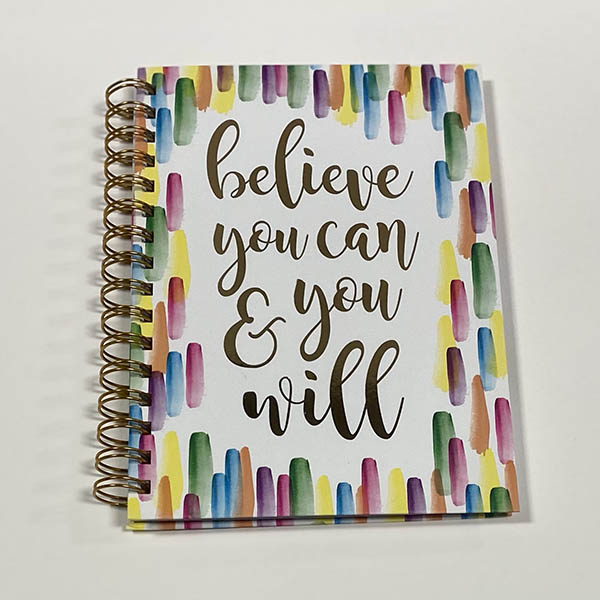 believe
you can
& you
will